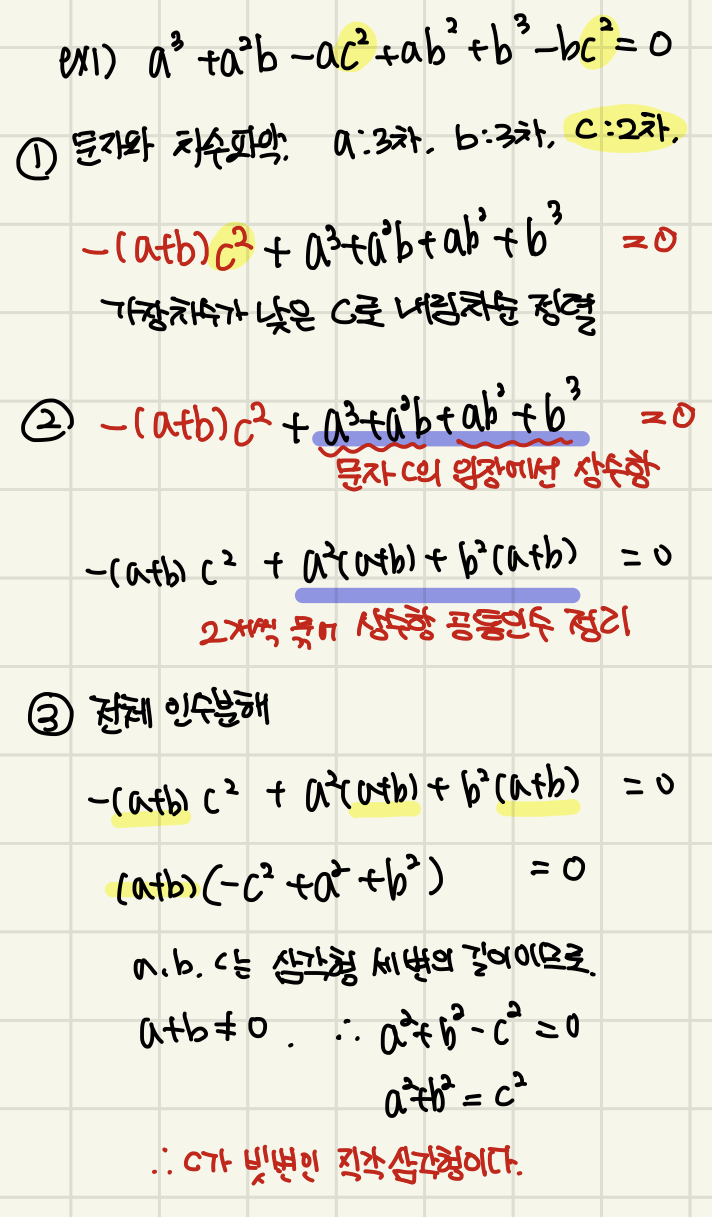 ex1) a³ + a²b - ac² + ab² + b³ - bc² = 0
① 문자와 차수파악. a:3차, b:3차, c:2차.
-(a+b)c² + a³+a²b+ab²+b³ = 0
가장차수가 낮은 c로 내림차순 정렬
② -(a+b)c² + a³+a²b+ab²+b³ = 0
문자 c의 입장에선 상수항
-(a+b)c² + a²(a+b) + b²(a+b) = 0
2개씩 묶어 상수항 공통인수 정리
③ 전체 인수분해
-(a+b)c² + a²(a+b) + b²(a+b) = 0
(a+b)(-c²+a²+b²) = 0
a.b.c는 삼각형 세변의 길이이므로.
a+b≠0. ∴ a²+b²-c²=0
a²+b²=c²
∴ c가 빗변인 직각삼각형이다.